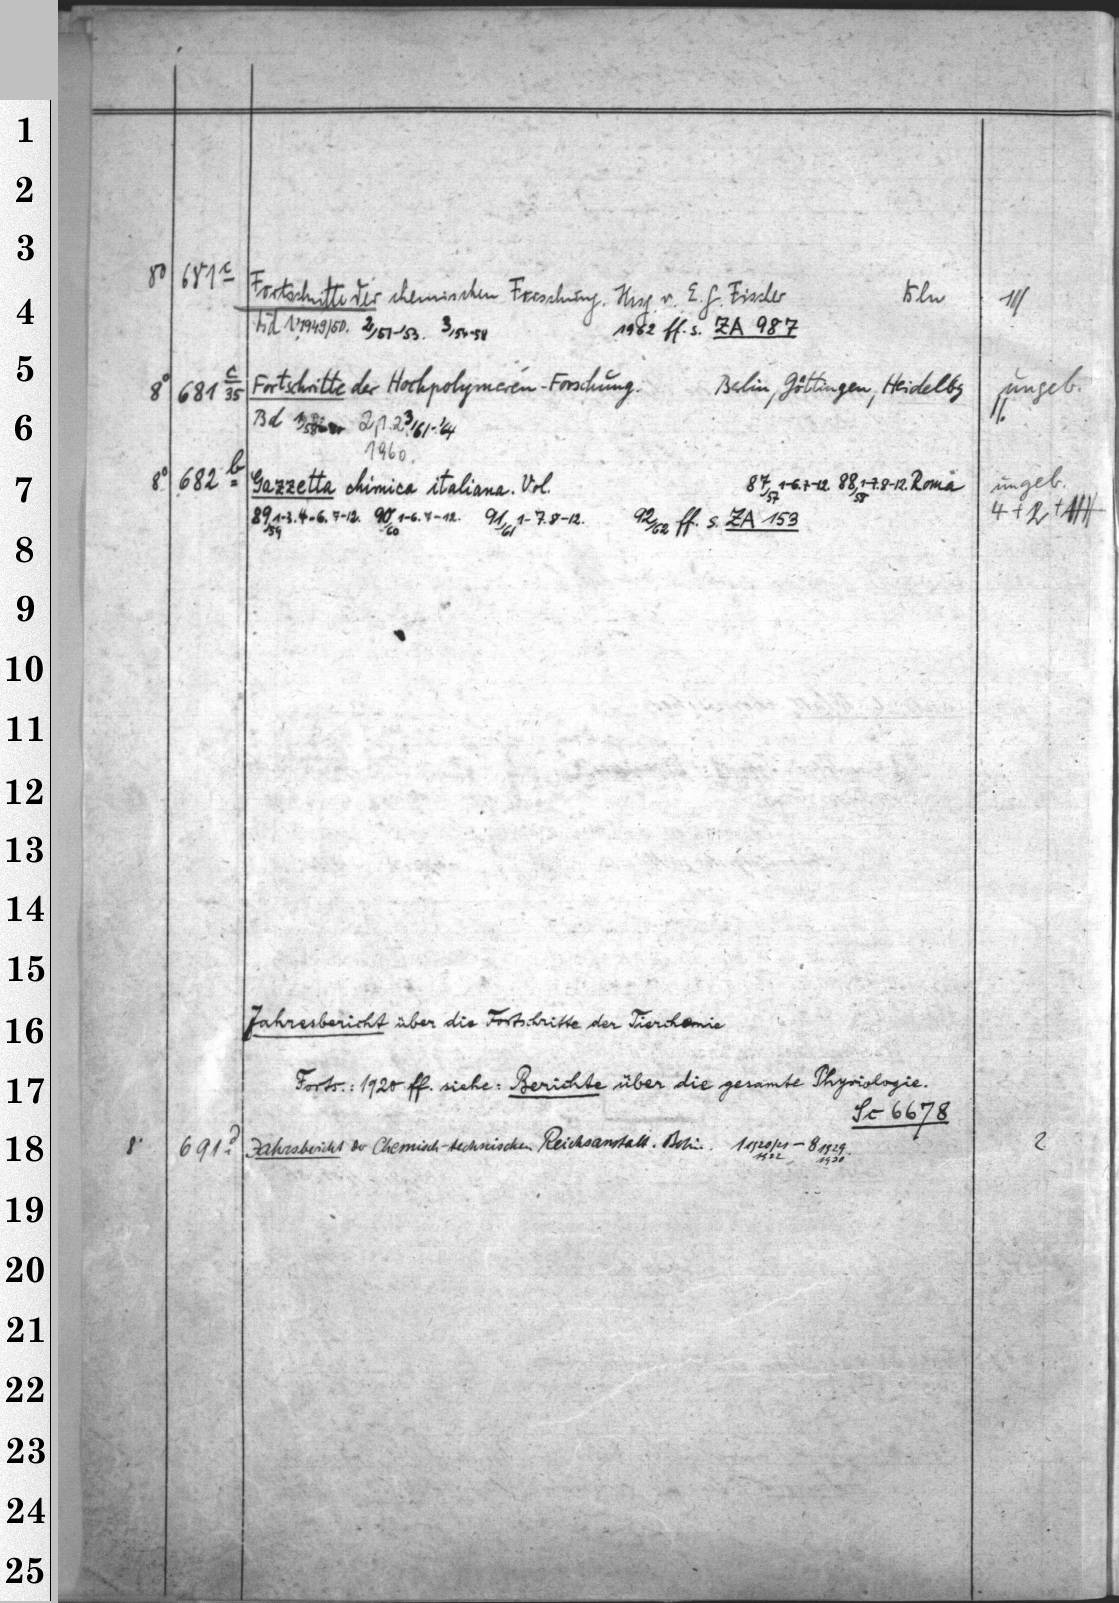 1
2
3
8° 681 c Fortschritte der chemischen Forschung. Hrsg. v. E. G. Fischer Bln
4
Bd 1, 1949/50. 2/51-'53. 3/54-58 1962 ff. s. ZA 987
5
8° 681 c/35 Fortschritte der Hochpolymeren-Forschung. Berlin, Göttingen, Heidelbg ungeb.
6
Bd 3/61-'64
1960.
7
8° 682 b Gazzetta chimica italiana. Vol. 87/57 1-6.7-12 88/58 1-7.8-12. Roma ungeb.
89/59 1-3.4-6.7-12. 90/60 1-6.7-12. 91/61 1-7.8-12. 92/62 ff. s. ZA 153 4 + 2 +
8
9
10
11
12
13
14
15
16 Jahresbericht über die Fortschritte der Tierchemie
17 Forts.: 1920 ff. siehe: Berichte über die gesamte Physiologie.
Sc 6678
18 8° 691 Jahresbericht der Chemisch-technischen Reichsanstalt. Berlin. 1 1920/21 - 8 1929 2
1922 1930
19
20
21
22
23
24
25